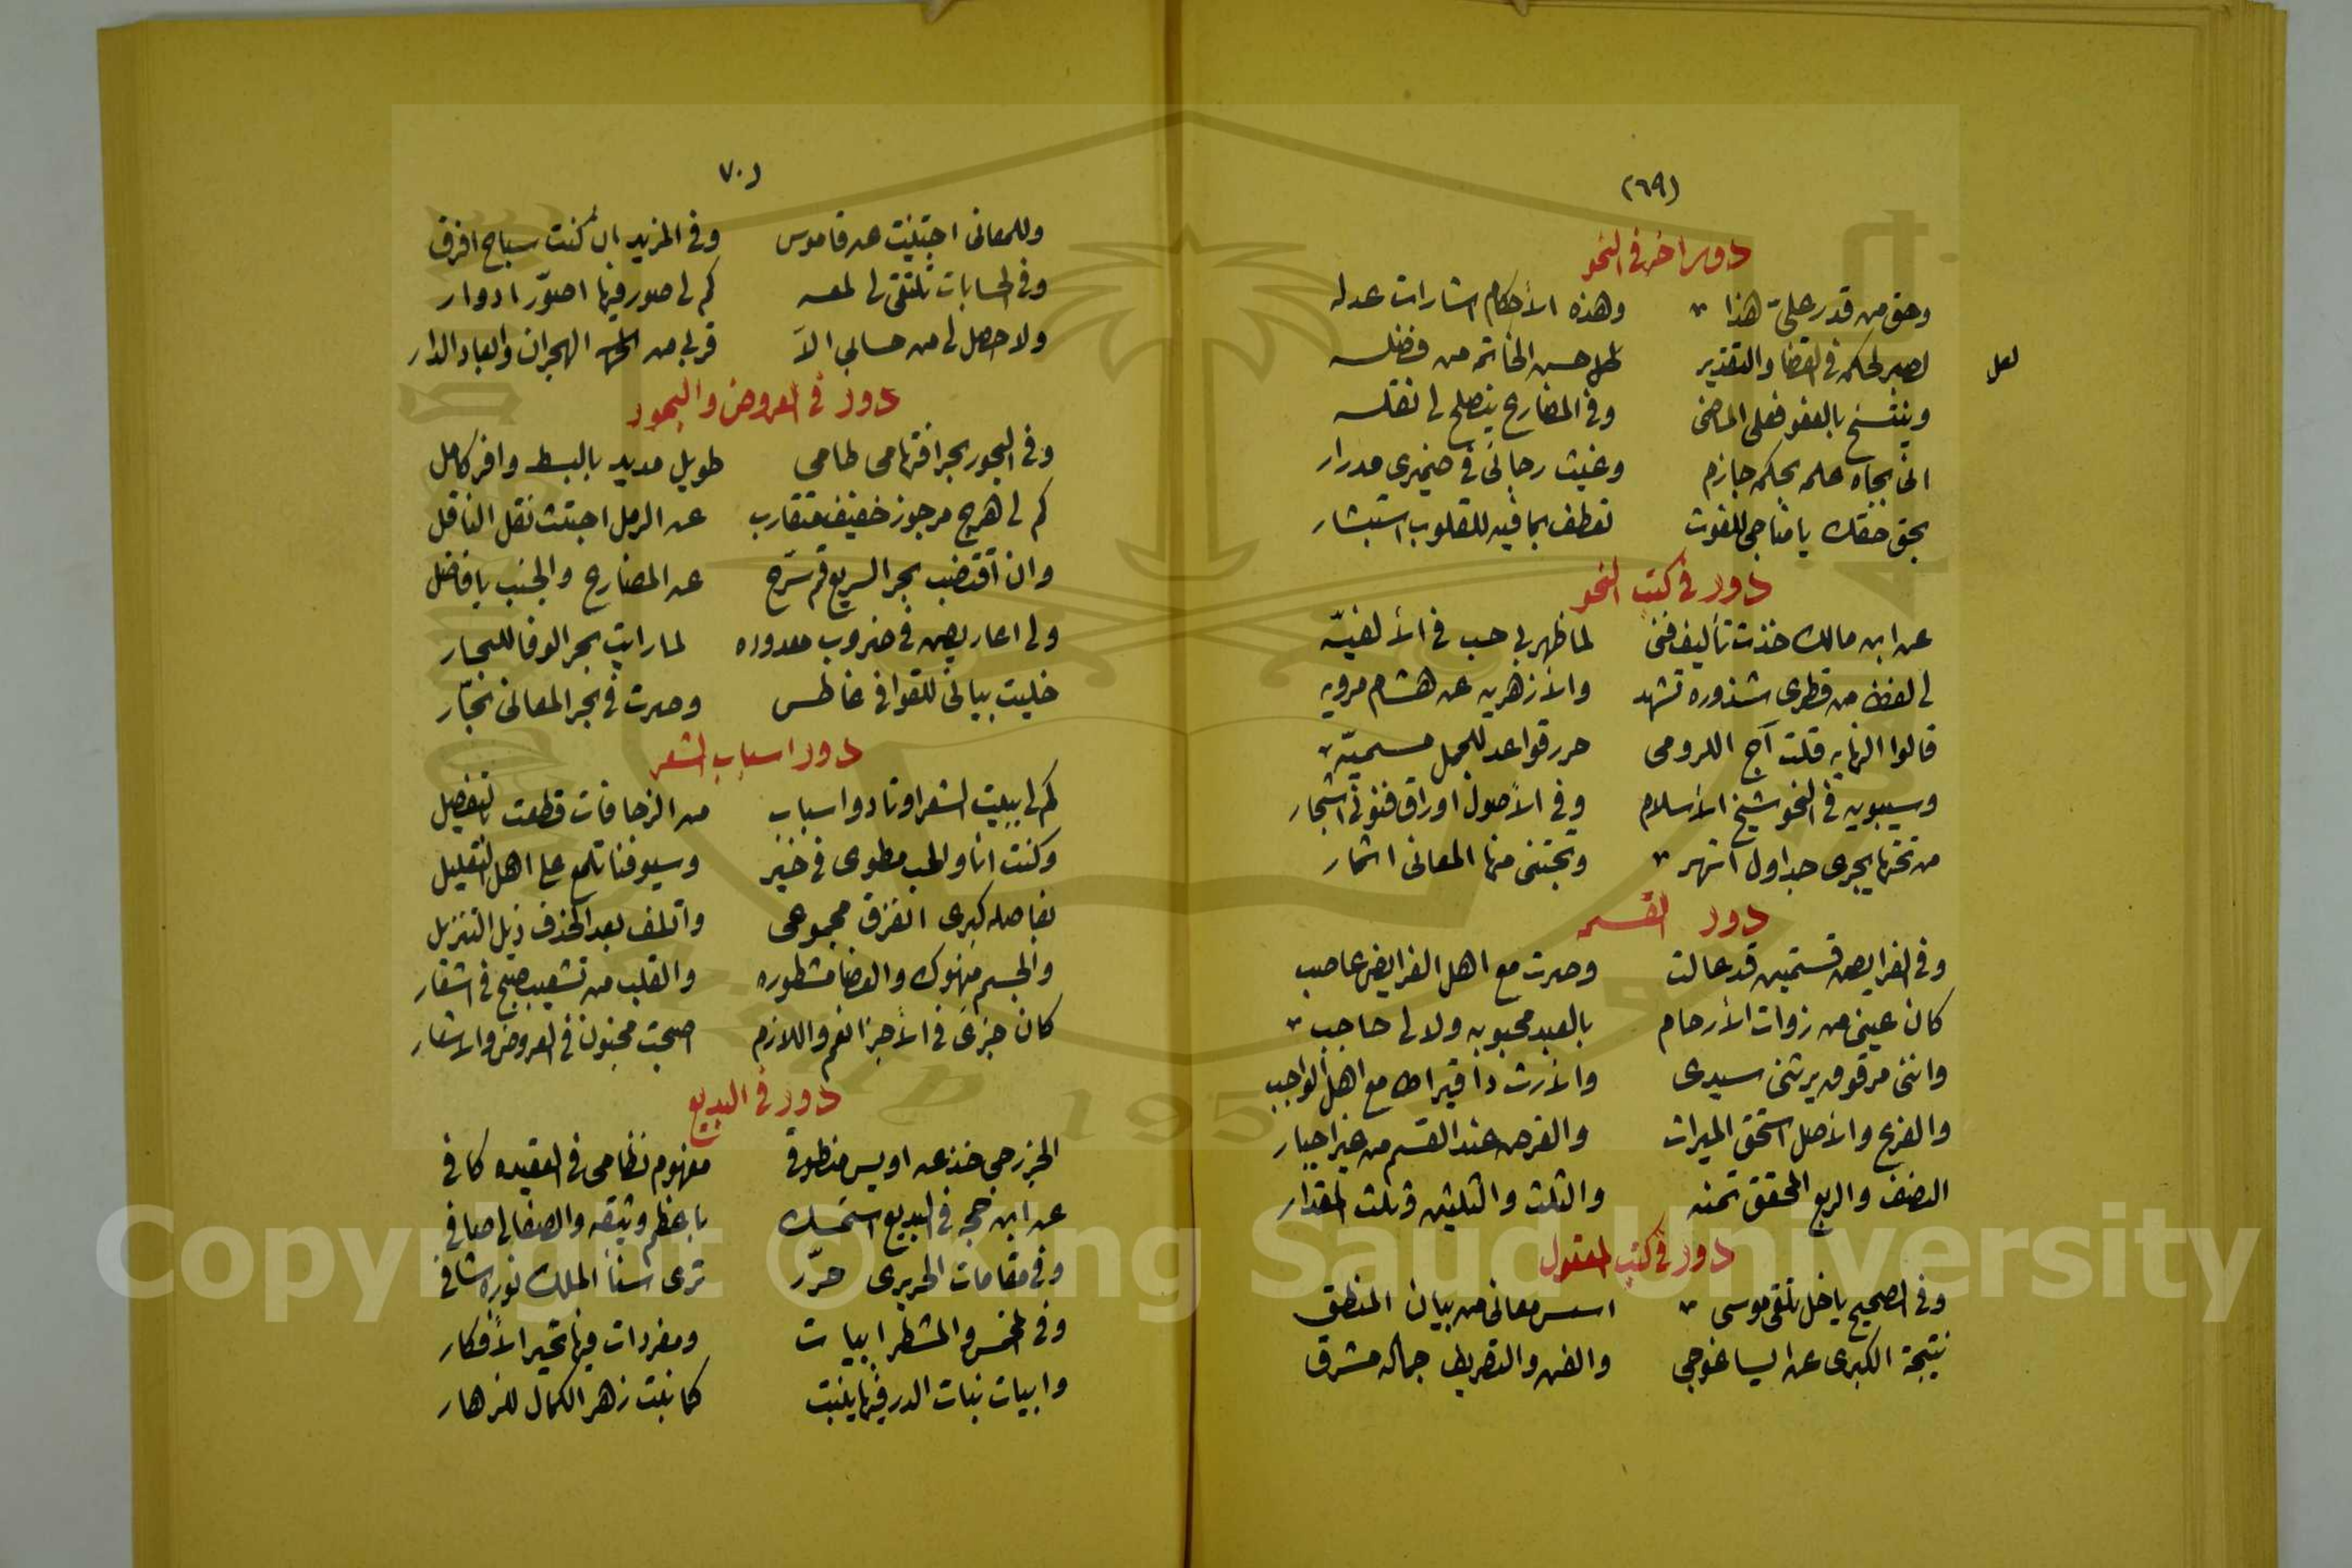 (٦٩)
دور اخر فى النحو
وحق من قدر على هذا وهذه الأحكام اشارات عدله
لعل
اصبر لحكمه فى القضا والتقدير لعل حسن الخاتمه من فضله
وينتسخ بالعفو فعلى الماضى وفى المضارع ينصلح لى نقله
انى بجاه حلمه بحكمه جازم وغيث رجائى فى ضميرى مدرار
بحق خفقك يا مناجى للغوث تعطف بما فيه للقلوب استبشار
دور فى كتب النحو
عن ابن مالك خذت تأليف فنى لما ظهر لى حب فى الألفيّه
لى لفظ من قطرى شذوره تشهد والأزهريه عن هشام مرويه
قالوا النهايه قلت آج اللرومى حرر قواعد للجمل مسميّه
وسيبويه فى النحو شيخ الأسلام وفى الأصول اوراق فنونى اشجار
من تحتها يجرى جداول انهر وتجتنى منها المعانى اثمار
دور القسمه
وفى الفرايض قسمتين قد عالت وصرت مع اهل الفرايض عاصب
كان عينى من زوات الأرحام بالعبد محبوبه ولا لى حاجب
وانثى مرقوقه يرثنى سيدى والأرث دا قيراط مع اهل الواجب
والفرع والأصل استحق الميرات والفرض عند القسم من غير اجبار
النصف والربع المحقق تمنه والثلث والثلثين وثلث المقدار
دور فى كتب المعقول
وفى الصحيح ياخل تلقى موسى اسس معانى من بيان المنطق
نتيجة الكبرى عن ايساغوجى والفن والتصريف جماله مشرق
(٧٠
وللمعانى اجتنيت من قاموس وفى المزيد ان كنت سباح افرق
وفى الحسابات تلتقى لى لمعه كم لى صور فيها اصوّر ادوار
ولا حصل لى من حسابى الآ قربى من الهجران وابعاد الدار
دور فى العروض والبحور
وفى البحور بحر افتهامى طامى طويل مديد بالبسط وافر كامل
كم لى هرج مرجوز خفيف متقارب عن الرمل اجتثت نقل الناقل
وان اقتضب بحر السريع قم سرّح عن المضارع والجنب يا فاضل
ولى اعاريض فى ضروب معدوده لما رايت بحر الوفا للبحار
خليت بيانى للقوافى غاطس وصرت فى بحر المعانى نجّار
دور اسباب الشعر
كم لى ببيت الشعر اوتاد واسباب من الزحافات قطعت بالتفصيل
وكنت انا والحب مطوى فى خير وسيوفنا تلمع على اهل التعليل
بفاصله كبرى انفرق مجموعى واتلف بعد الحذف ذيل التنزيل
والجسم منهوك والعضا مشطوره والقلب من تشعيب صبح فى اشفار
كان جزئى فى الأجزا نغم واللازم اصبحت مجنون فى العروض والاشعار
دور فى البديع
الخزرجى خذ عن اويس منطوقى مفهوم نظامى فى العقيده كافى
عن ابن حجه فى البديع استمسك باعظم وثيقه والصفا لى صافى
وفى مقامات الحريرى حرّر ترى سنأ الملك نوره شافى
وفى المخمس والمشطر ابيات ومفردات فيها تحير الأفكار
وابيات نبات الدر فيها ينبت كما نبت زهر الكمال للزهار